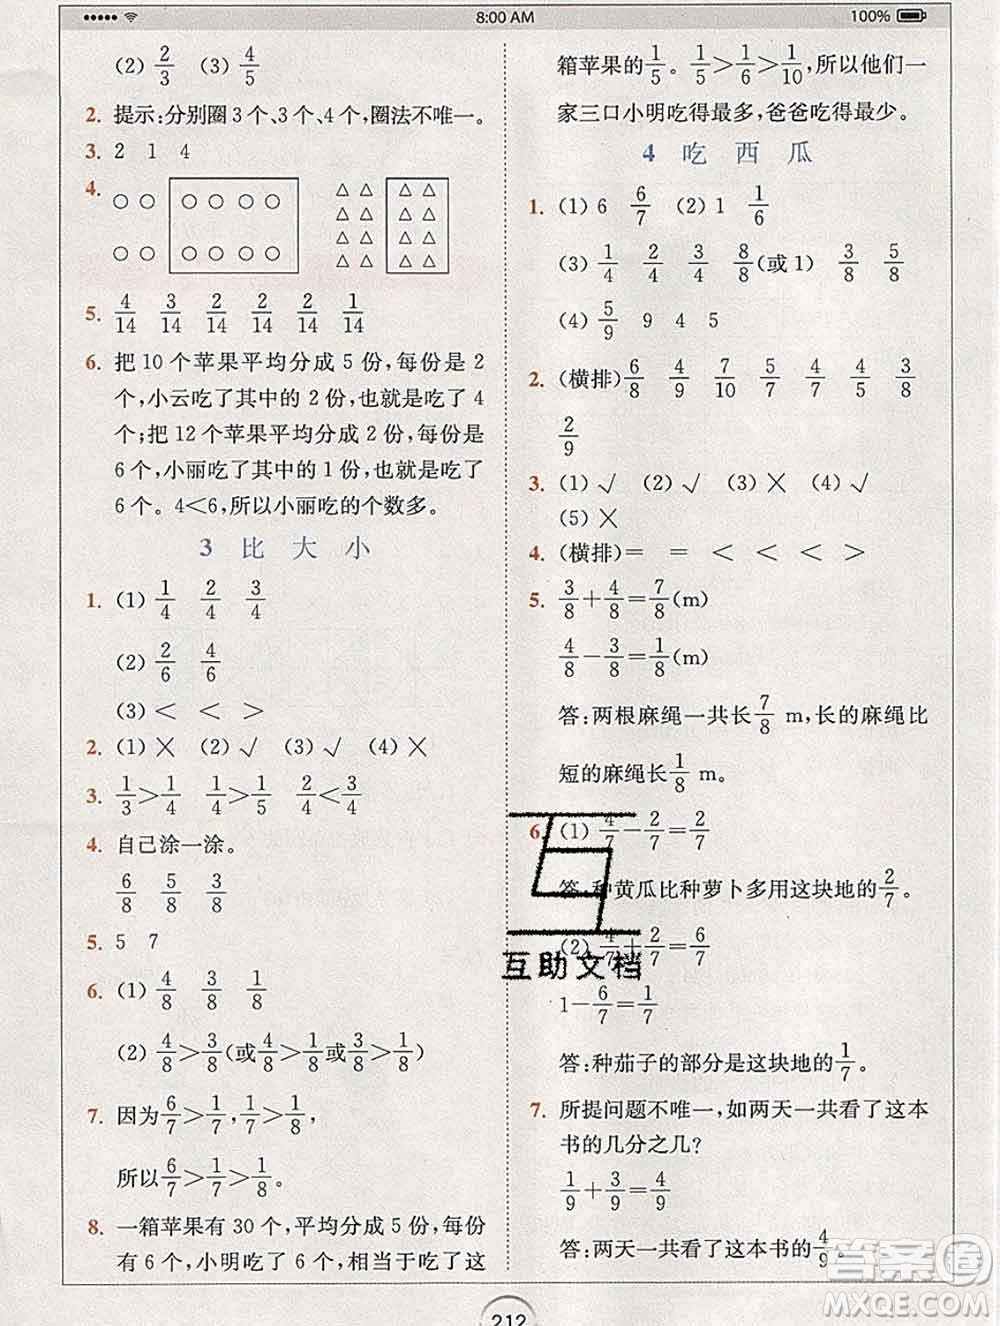 8:00 AM
100%
(2) 2/3 (3) 4/5
2. 提示:分别圈3个、3个、4个,圈法不唯一。
3. 2 1 4
4.
5. 4/14 3/14 2/14 2/14 2/14 1/14
6. 把10个苹果平均分成5份,每份是2
个,小云吃了其中的2份,也就是吃了4
个;把12个苹果平均分成2份,每份是
6个,小丽吃了其中的1份,也就是吃了
6个。4<6,所以小丽吃的个数多。
3 比大小
1. (1) 1/4 2/4 3/4
(2) 2/6 4/6
(3) < < >
2. (1)× (2)√ (3)√ (4)×
3. 1/3>1/4 1/4>1/5 2/4<3/4
4. 自己涂一涂。
6/8 5/8 3/8
5. 5 7
6. (1) 4/8 3/8 1/8
(2) 4/8>3/8(或4/8>1/8或3/8>1/8)
7. 因为6/7>1/7,1/7>1/8,
所以6/7>1/7>1/8。
8. 一箱苹果有30个,平均分成5份,每份
有6个,小明吃了6个,相当于吃了这
箱苹果的1/5。1/5>1/6>1/10,所以他们一
家三口小明吃得最多,爸爸吃得最少。
4 吃西瓜
1. (1) 6 6/7 (2) 1 1/6
(3) 1/4 2/4 3/4 8/8(或1) 3/8 5/8
(4) 5/9 9 4 5
2. (横排)6/8 4/9 7/10 5/7 4/7 4/5 3/8
2/9
3. (1)√ (2)√ (3)× (4)√
(5)×
4. (横排)= = < < < <
5. 3/8+4/8=7/8(m)
4/8-3/8=1/8(m)
答:两根麻绳一共长7/8 m,长的麻绳比
短的麻绳长1/8 m。
6. (1) 4/7-2/7=2/7
答:种黄瓜比种萝卜多用这块地的2/7。
(2) 4/7+2/7=6/7
互助文档
1-6/7=1/7
答:种茄子的部分是这块地的1/7。
7. 所提问题不唯一,如两天一共看了这本
书的几分之几?
1/9+3/9=4/9
答:两天一共看了这本书的4/9。
答案圈
MXQE.COM
212